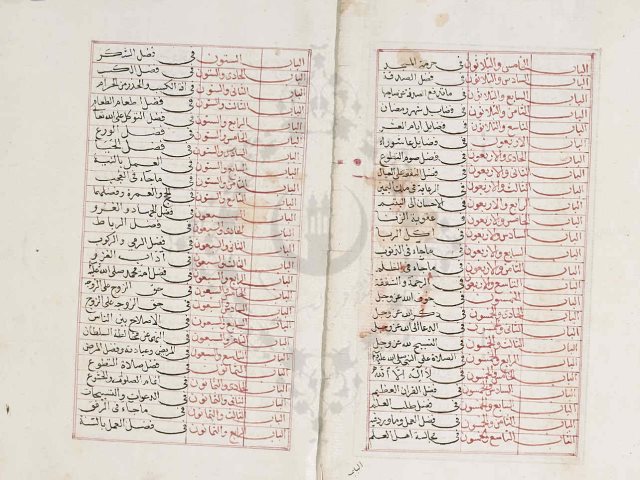 الباب الخامس والثلاثون في حرمة المسجد
الباب السادس والثلاثون في فضل الصدقة
الباب السابع والثلاثون في ما تدفع الصدقة عن صاحبها
الباب الثامن والثلاثون في فضايل شهر رمضان
الباب التاسع والثلاثون في فضايل ايام العشر
الباب الاربعون في فضايل عاشوراء
الباب الحادى والاربعون في فضل صوم التطوع
الباب الثانى والاربعون في فضل النفقة على العيال
الباب الثالث والاربعون في الرعاية في ملك اليمين
الباب الرابع والاربعون في الاحسان الى اليتيم
الباب الخامس والاربعون في عقوبة الزنا
الباب السادس والاربعون في آكل الربا
الباب السابع والاربعون في ماجاء فى الذنوب
الباب الثامن والاربعون في ماجاء فى الظلم
الباب التاسع والاربعون في الرحمة والشفقة
الباب الخمسون في خوف الله عز وجل
الباب الحادى والخمسون في ذكر الله عز وجل
الباب الثانى والخمسون في الدعا الى الله عز وجل
الباب الثالث والخمسون في التسبيح لله عز وجل
الباب الرابع والخمسون في الصلاة على النبى صلى الله عليه
الباب الخامس والخمسون في لا اله الا الله
الباب السادس والخمسون في فضل القران العظيم
الباب السابع والخمسون في فضل طلب العلم
الباب الثامن والخمسون في فضل العمل وما ورد فيه
الباب التاسع والخمسون في مجالسة اهل العلم
الباب الستون في فضل الشكر
الباب الحادى والستون في فضل الكسب
الباب الثانى والستون في افة الكسب والحذر من الحرام
الباب الثالث والستون في فضل اطعام الطعام
الباب الرابع والستون في فضل التوكل على الله تعا
الباب الخامس والستون في فضل الورع
الباب السادس والستون في فضل
الباب السابع والستون في العمل بالنية
الباب الثامن والستون في ماجاء فى العجب
الباب التاسع والستون في الحج والعمرة وفضلهما
الباب السبعون في فضل الجهاد والغزو
الباب الحادى والسبعون في فضل الرباط
الباب الثانى والسبعون في فضل الرمى والركوب
الباب الثالث والسبعون في آداب الغزو
الباب الرابع والسبعون في فضل امة محمد صلى الله عليه
الباب الخامس والسبعون في حق الزوج على الزوجة
الباب السادس والسبعون في حق الزوجة على الزوج
الباب السابع والسبعون في الاصلاح بين الناس
الباب الثامن والسبعون في النهى عن مخالطة السلطان
الباب التاسع والسبعون في المرض وعيادته وفضل المرض
الباب الثمانون في فضل صلاة التطوع
الباب الحادى والثمانون في اتمام الصلوة والخشوع
الباب الثانى والثمانون في الدعوات والتسبيحات
الباب الثالث والثمانون في ماجاء فى الرفق
الباب الرابع والثمانون في فضل العمل بالسنة